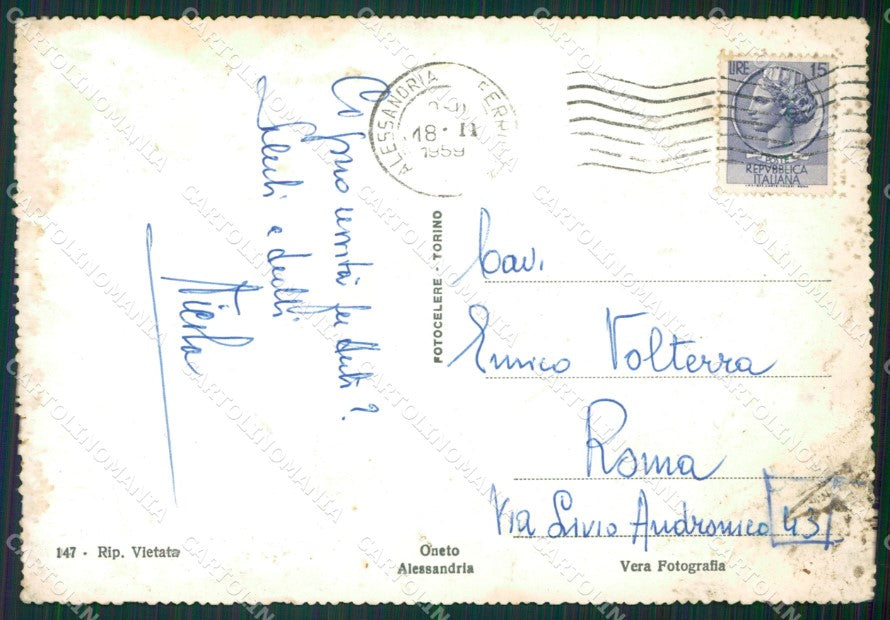 Ci sono novità per tutti?
Saluti a tutti.
ALESSANDRIA FERR
18 · II
1959
LIRE 15
POSTE
REPVBBLICA
ITALIANA
FOTOCELERE - TORINO
Cav.
Enrico Volterra
Roma
Via Livio Andronico 43
147 - Rip. Vietata
Oneto
Alessandria
Vera Fotografia
CARTOLINOMANIA